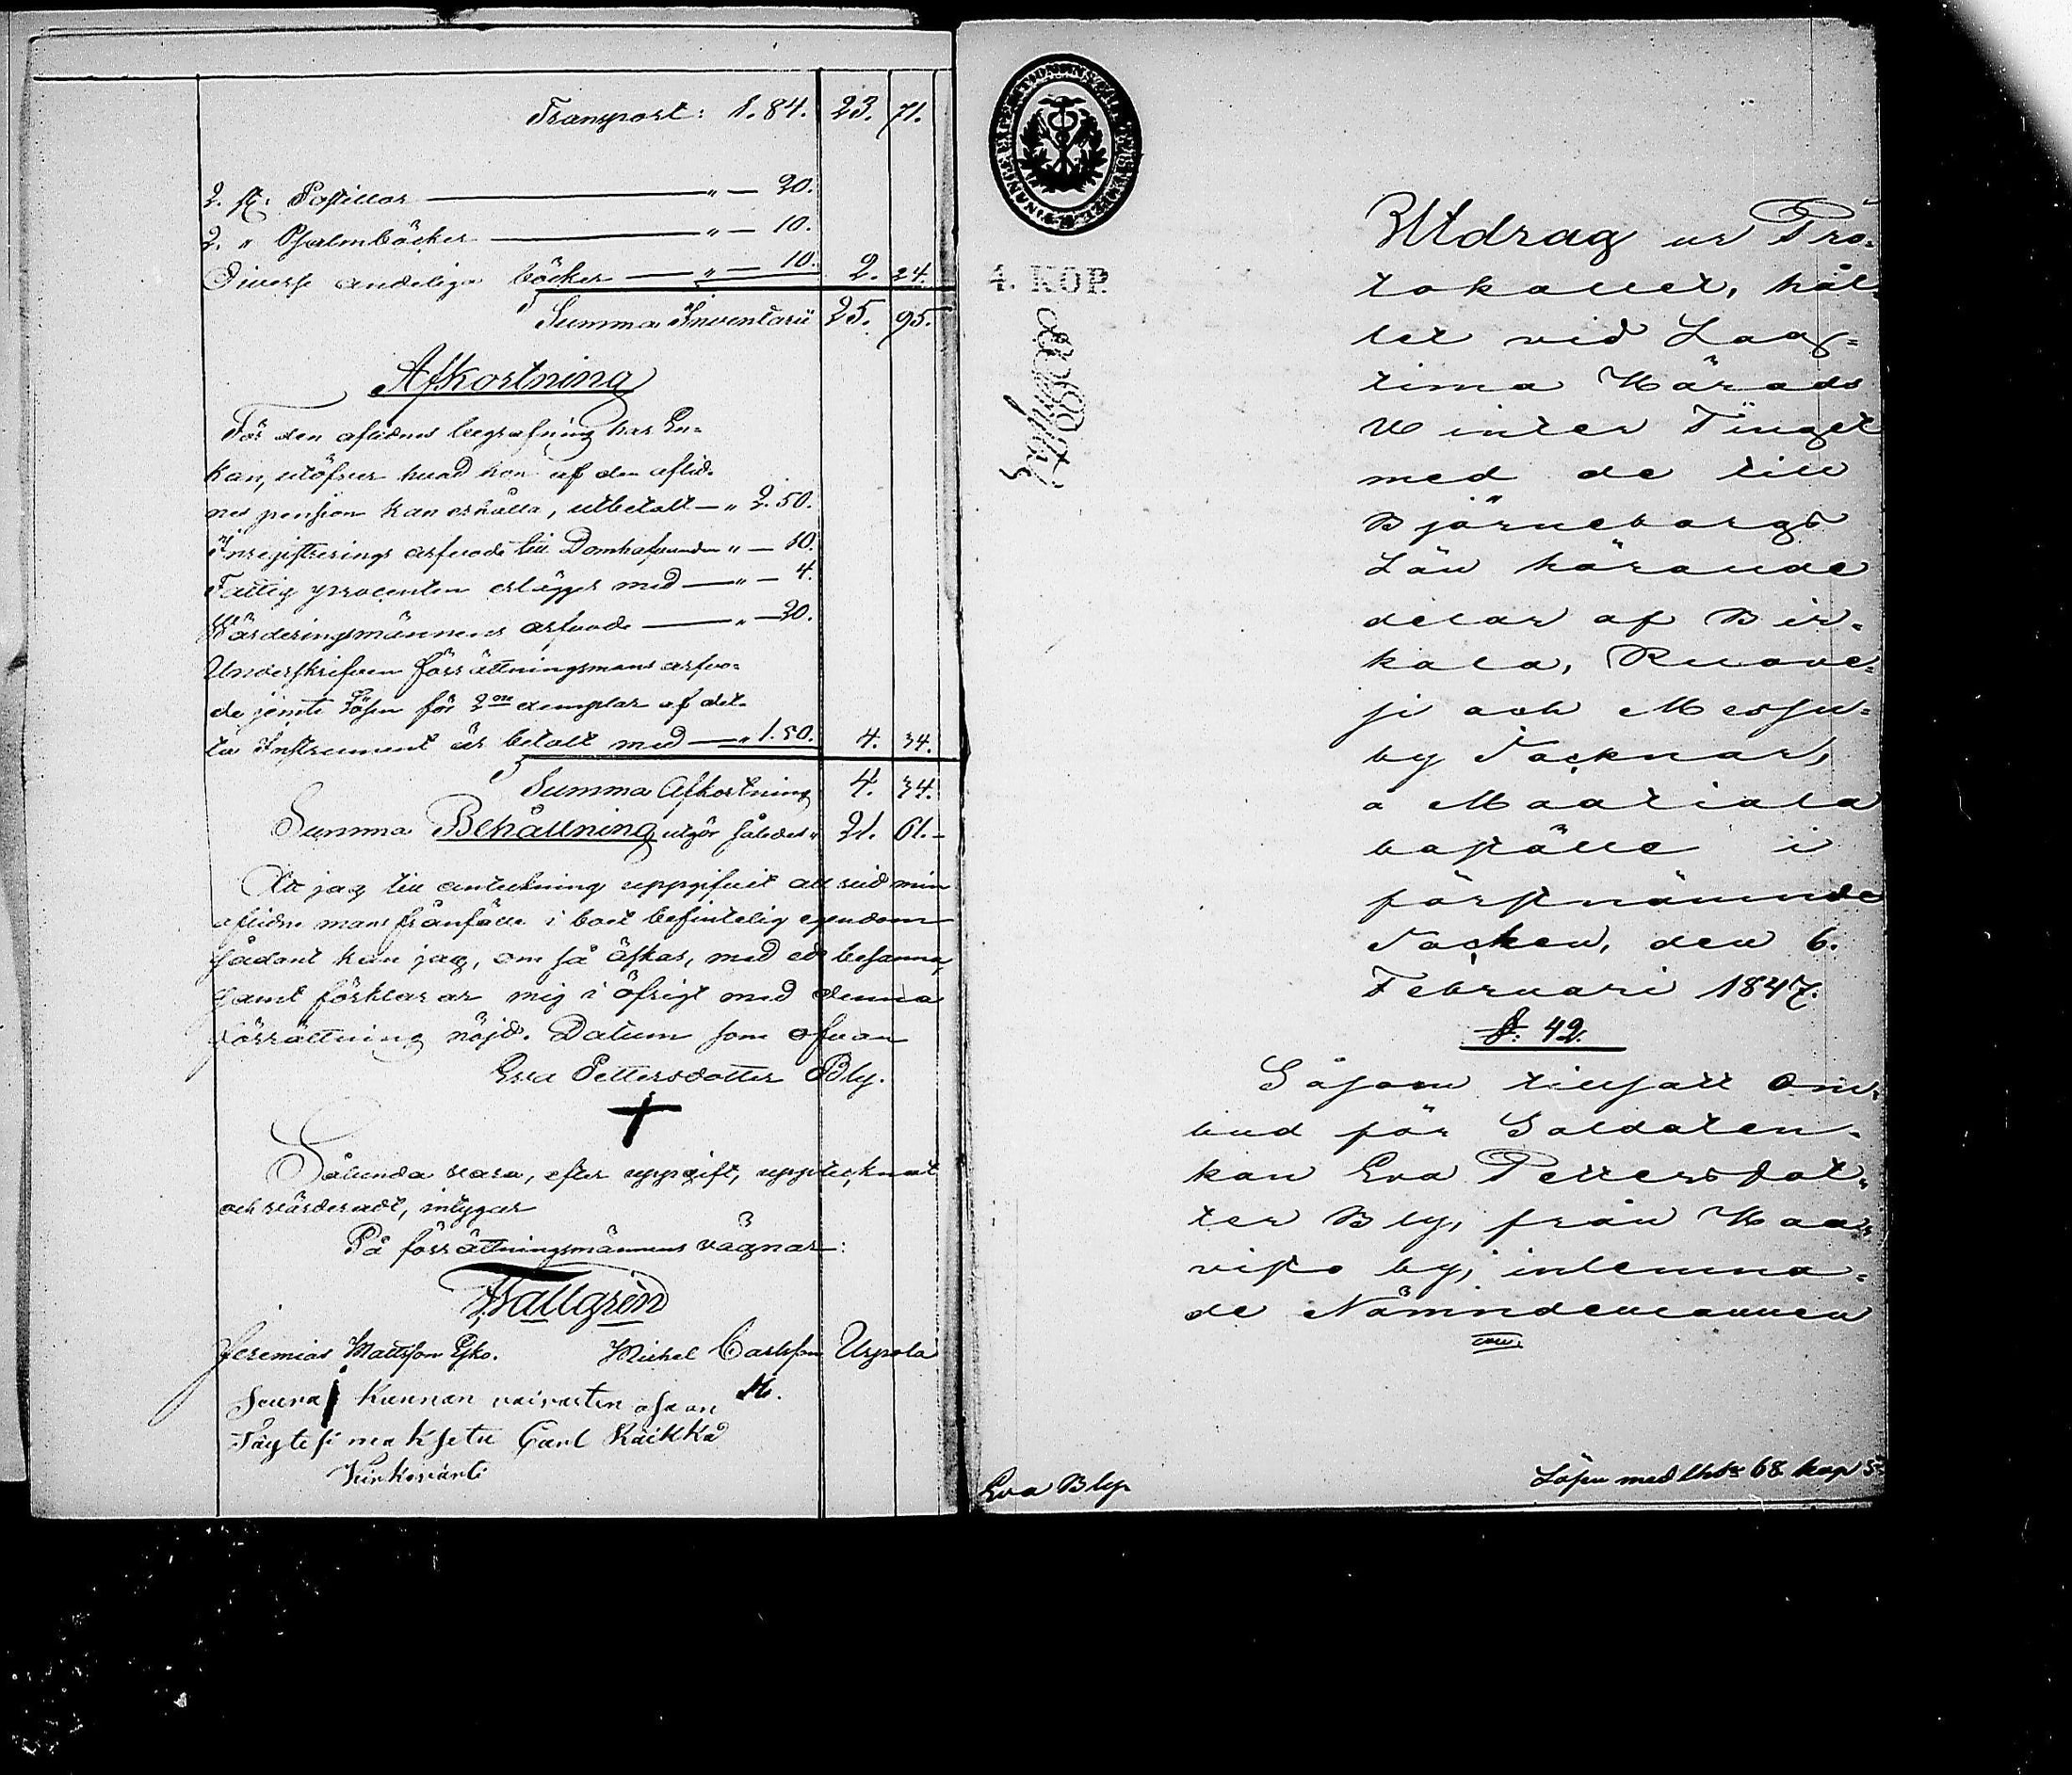 Transport: 1. 84. 23. 71.
2. st. Postillor — " — 20.
2. " Psalmböcker — " — 10.
Diverse andeliga böcker — " — 10. 2. 24.
Summa Inventarii 25. 95.
Afkortning
För den aflidnes begrafning har En-
kan, utöfver hvad hon af den aflid-
nes pension kan erhålla, utbetalt — " 2. 50.
Inregistrerings arfvode till Domhafvanden " — 10.
Fattig procenten erlägges med — " — 4.
Värderingsmännens arfvode — " — 20.
Underskrifven förrättningsmans arfvo-
de jemte Lösen för 2ne exemplar af det-
ta Instrument är betalt med — " 1. 50. 4. 34.
Summa Afkortning 4. 34.
Summa Behållning utgör således " 21. 61. -
Att jag till anteckning uppgifvit all vid min
aflidne mans frånfälle i boet befintelig egendom
sådant kan jag, om så äskas, med ed besanna,
samt förklarar mig i öfrigt med denna
förrättning nöjd. Datum som ofvan
Eva Pettersdotter Bly.
Sålunda vara, efter uppgift, upptecknat
och värderadt, intygar
På förrättningsmännens vägnar:
Wallgren
Jeremias Mattsson Esko. Michel Carlsson Uspola
Seura kunnan vaivasten osa on 4.
Täytesi maksetu Carl Räikkä
Kirkovärti
4. KOP.
Utdrag ur Pro-
tokollet, hål-
let vid Laag-
tima Härads
Winter Tinget
med de till
Björneborgs
Län hörande
delar af Bir-
kala, Ruove-
si och Messu-
by Socknar,
å Maatiala
boställe i
förstnämnde
Socken, den 6.
Februari 1847.
§. 42.
Såsom tillsatt Om-
bud för Soldaten-
kan Eva Pettersdot-
ter Bly, från Haa-
visto by, inlemna-
de Nämndemannen
Eva Bly
Lösen med Chtæ 68 kop S:r